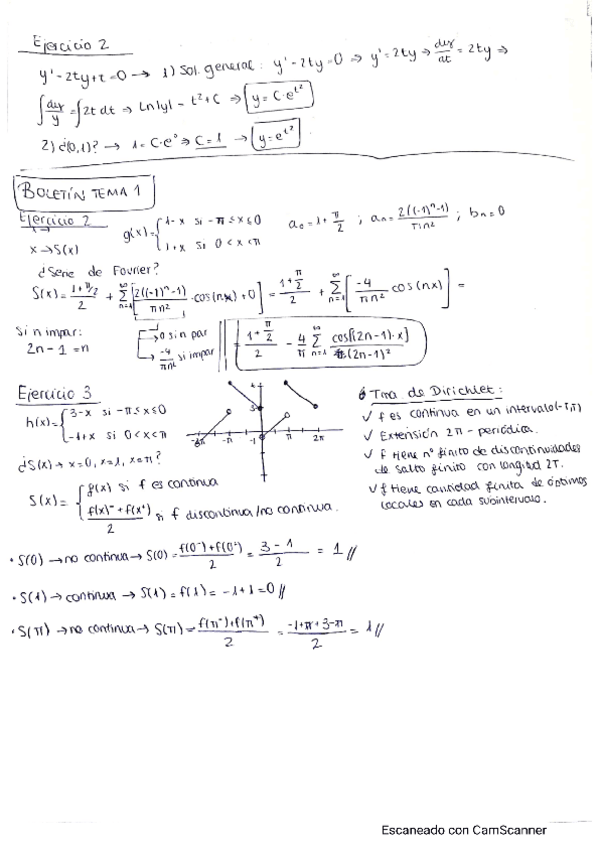 Ejercicio 2
y' - 2ty + t = 0 → 1) Sol. general: y' - 2ty = 0 ⇒ y' = 2ty ⇒ dy/dt = 2ty ⇒
∫ dy/y = ∫ 2t dt ⇒ Ln|y| - t² + C ⇒ y = C·e^t²
2) ¿(0,1)? → 1 = C·e⁰ ⇒ C = 1 → y = e^t²
BOLETÍN TEMA 1
Ejercicio 2
g(x) = { 1-x si -π ≤ x ≤ 0
1+x si 0 < x < π
a₀ = 1 + π/2 ; aₙ = 2((-1)ⁿ-1)/πn² ; bₙ = 0
x → S(x)
¿Serie de Fourier?
S(x) = (1+π/2)/2 + Σ n=1 ∞ [2((-1)ⁿ-1)/πn² · cos(nx) + 0] = (1+π/2)/2 + Σ n=1 ∞ [-4/πn² cos(nx)] =
Si n impar:
2n - 1 = n
→ 0 si n par
→ -4/πn² si impar
= (1+π/2)/2 - 4/π Σ n=1 ∞ cos[(2n-1)·x]/(2n-1)²
Ejercicio 3
h(x) = { 3-x si -π ≤ x ≤ 0
-1+x si 0 < x < π
-π -1 π 2π
¿S(x) → x=0, x=1, x=π?
S(x) = { f(x) si f es continua
f(x)⁻ + f(x⁺) / 2 si f discontinua/no continua.
Tma. de Dirichlet:
✓ f es continua en un intervalo (-T,T)
✓ Extensión 2π - periódica.
✓ f tiene nº finito de discontinuidades
de salto finito con longitud 2T.
✓ f tiene cantidad finita de óptimos
locales en cada subintervalo.
• S(0) → no continua → S(0) = f(0⁻)+f(0⁺)/2 = 3-1/2 = 1 //
• S(1) → continua → S(1) = f(1) = -1+1 = 0 //
• S(π) → no continua → S(π) = f(π⁻)+f(π⁺)/2 = -1+π+3-π/2 = 1 //
Escaneado con CamScanner